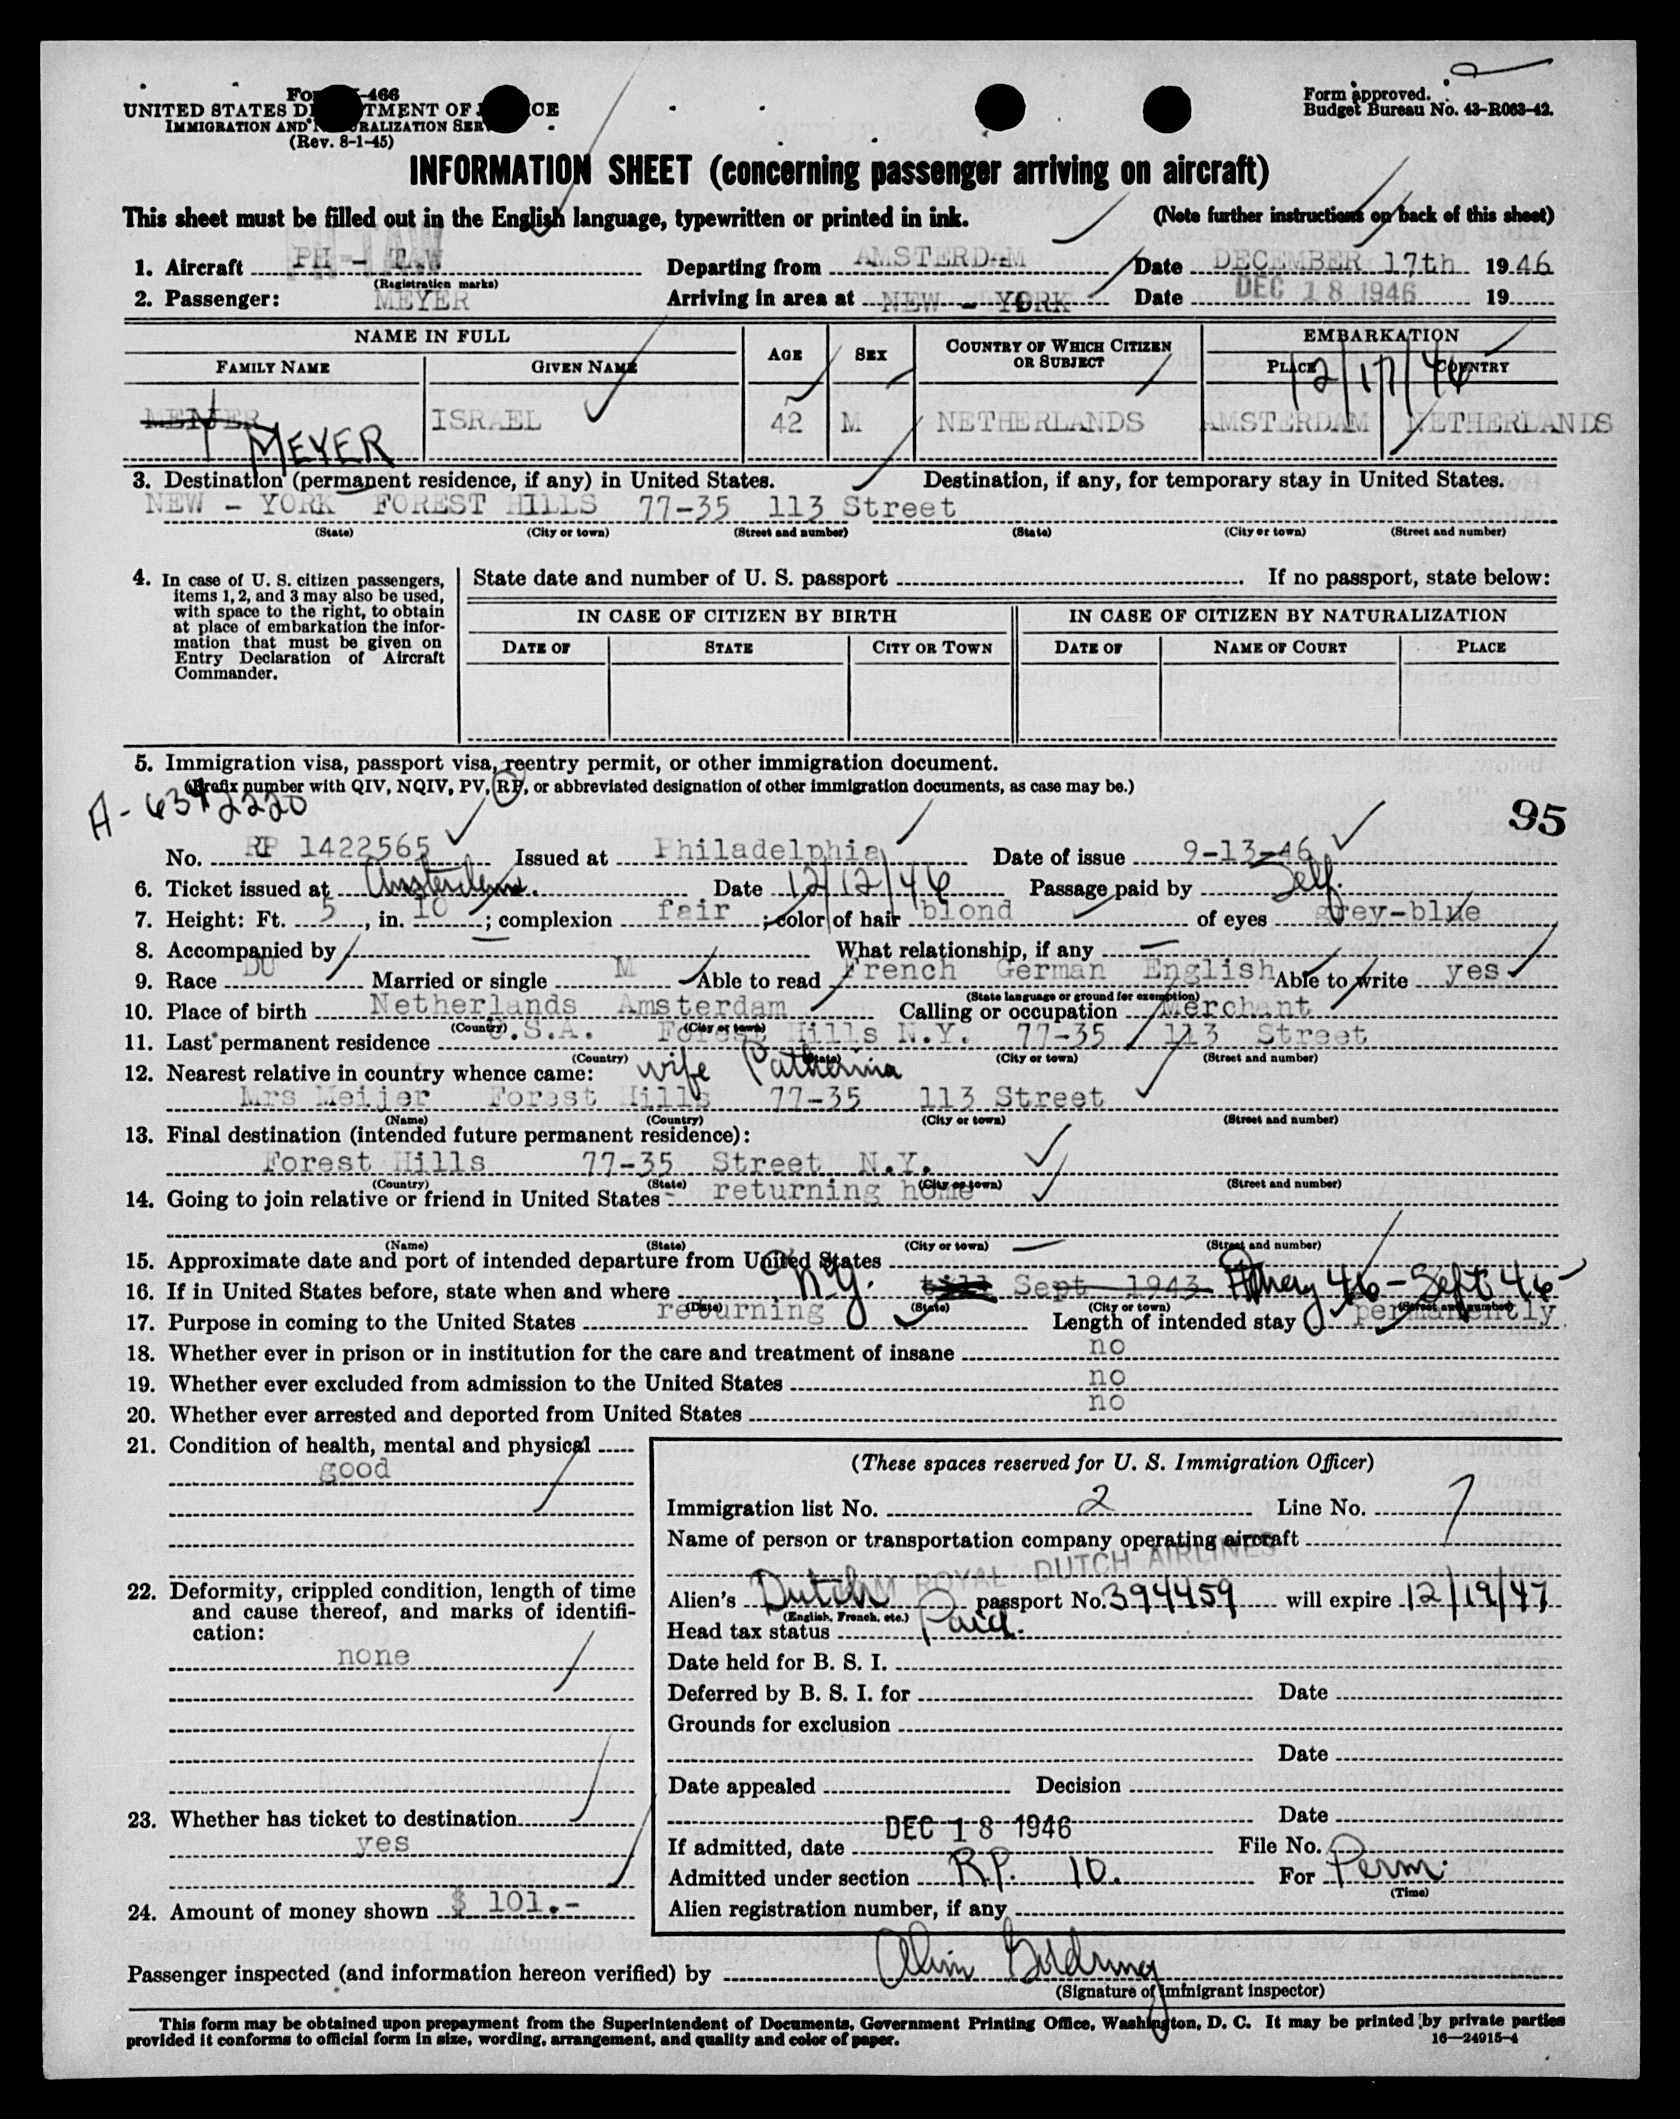 Form I-466
UNITED STATES DEPARTMENT OF JUSTICE
IMMIGRATION AND NATURALIZATION SERVICE
(Rev. 8-1-45)
Form approved.
Budget Bureau No. 43-R063-42.
INFORMATION SHEET (concerning passenger arriving on aircraft)
This sheet must be filled out in the English language, typewritten or printed in ink. (Note further instructions on back of this sheet)
1. Aircraft PH - TAW Departing from AMSTERDAM Date DECEMBER 17th 1946
(Registration marks)
2. Passenger: MEYER Arriving in area at NEW - YORK Date DEC 18 1946 19
NAME IN FULL AGE SEX COUNTRY OF WHICH CITIZEN OR SUBJECT EMBARKATION
FAMILY NAME GIVEN NAME PLACE COUNTRY
12/17/46
MEIJER ISRAEL 42 M NETHERLANDS AMSTERDAM NETHERLANDS
MEYER
3. Destination (permanent residence, if any) in United States. Destination, if any, for temporary stay in United States.
NEW - YORK FOREST HILLS 77-35 113 Street
(State) (City or town) (Street and number) (State) (City or town) (Street and number)
4. In case of U. S. citizen passengers, items 1, 2, and 3 may also be used, with space to the right, to obtain at place of embarkation the information that must be given on Entry Declaration of Aircraft Commander.
State date and number of U. S. passport If no passport, state below:
IN CASE OF CITIZEN BY BIRTH IN CASE OF CITIZEN BY NATURALIZATION
DATE OF STATE CITY OR TOWN DATE OF NAME OF COURT PLACE
5. Immigration visa, passport visa, reentry permit, or other immigration document.
(Prefix number with QIV, NQIV, PV, RP, or abbreviated designation of other immigration documents, as case may be.)
95
No. RP 1422565 Issued at Philadelphia Date of issue 9-13-46
6. Ticket issued at Amsterdam. Date 12/12/46 Passage paid by Self.
7. Height: Ft. 5, in. 10; complexion fair; color of hair blond of eyes grey-blue
8. Accompanied by — What relationship, if any —
9. Race DU Married or single M Able to read French German English Able to write yes
(State language or ground for exemption)
10. Place of birth Netherlands Amsterdam Calling or occupation Merchant
(Country) (City or town)
11. Last permanent residence U.S.A. Forest Hills N.Y. 77-35 113 Street
(Country) (State) (City or town) (Street and number)
12. Nearest relative in country whence came: wife Catherina
Mrs Meijer Forest Hills 77-35 113 Street
(Name) (Country) (City or town) (Street and number)
13. Final destination (intended future permanent residence):
Forest Hills 77-35 Street N.Y.
(Country) (State) (City or town) (Street and number)
14. Going to join relative or friend in United States - returning home
(Name) (State) (City or town) (Street and number)
15. Approximate date and port of intended departure from United States —
16. If in United States before, state when and where N.Y. till Sept 1943 46-Sept 46
(Date) (State) (City or town) (Street and number)
17. Purpose in coming to the United States returning Length of intended stay permanently
18. Whether ever in prison or in institution for the care and treatment of insane no
19. Whether ever excluded from admission to the United States no
20. Whether ever arrested and deported from United States no
21. Condition of health, mental and physical
good
22. Deformity, crippled condition, length of time and cause thereof, and marks of identification:
none
23. Whether has ticket to destination
yes
24. Amount of money shown $ 101.-
(These spaces reserved for U. S. Immigration Officer)
Immigration list No. 2 Line No. 7
Name of person or transportation company operating aircraft
KLM ROYAL DUTCH AIRLINES
Alien's Dutch passport No. 394459 will expire 12/19/47
(English, French, etc.)
Head tax status Paid.
Date held for B. S. I.
Deferred by B. S. I. for Date
Grounds for exclusion
Date
Date appealed Decision
Date
If admitted, date DEC 18 1946 File No.
Admitted under section R.P. 10. For Perm.
(Time)
Alien registration number, if any
Passenger inspected (and information hereon verified) by
(Signature of immigrant inspector)
This form may be obtained upon prepayment from the Superintendent of Documents, Government Printing Office, Washington, D. C. It may be printed by private parties
provided it conforms to official form in size, wording, arrangement, and quality and color of paper.
16—24915-4